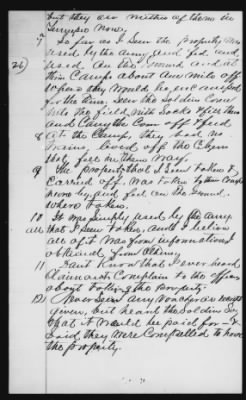 but they are neither of them in
Tennessee now.
7 So far as I seen the property was
used by the Army, and fed and
26) used on the ground and at
their Camps about one mile off
where they would be encamped
for the time. Seen the soldiers come
into the field with sacks fill them
and carry the corn off. Officers
8 at the Camp, they had no
trains, lived off the Citizens
that fell in their way.
9 The property that I seen taken &
carried off, was taken to their Camps
near by and fed on the ground.
where taken.
10 It was simply used by the Army
all that I seen taken, and I believe
all of it was from information I
obtained from others,
11 Dont know that I ever heard
Claimants Complain to the officers
about taking the property.
12) Never seen any Vouchers or receipts
given, but heard the soldiers say
that it would be paid for &
said they were Compelled to have
the property.